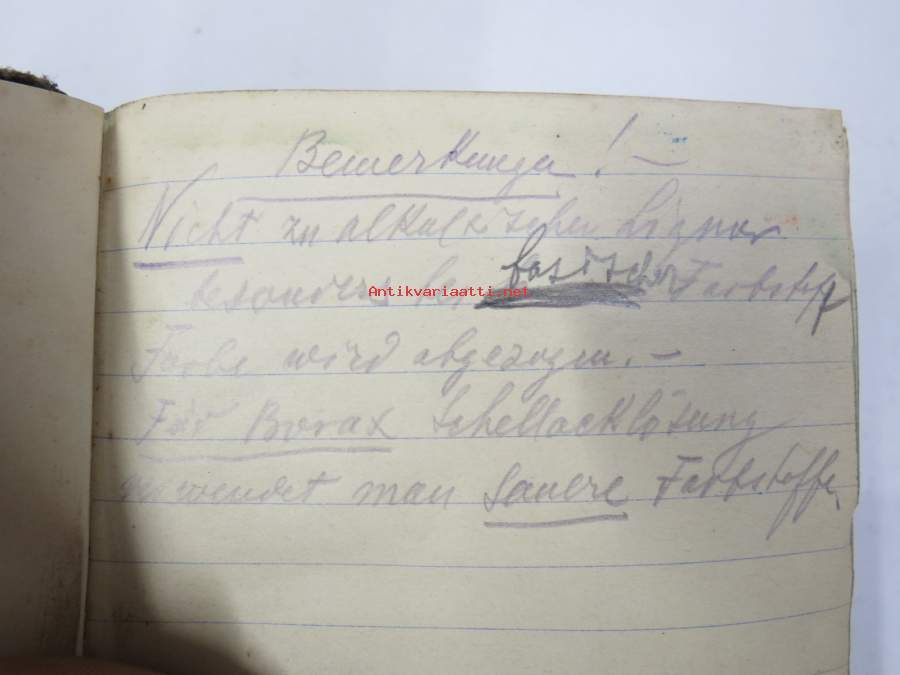 Bemerkungen! –
Nicht zu alkalischen Liquor
besonders bei basischer Farbstoff
Antikvariaatti.net
Farbe wird abgezogen. –
Für Borax Schellacklösung
verwendet man sauere Farbstoffe